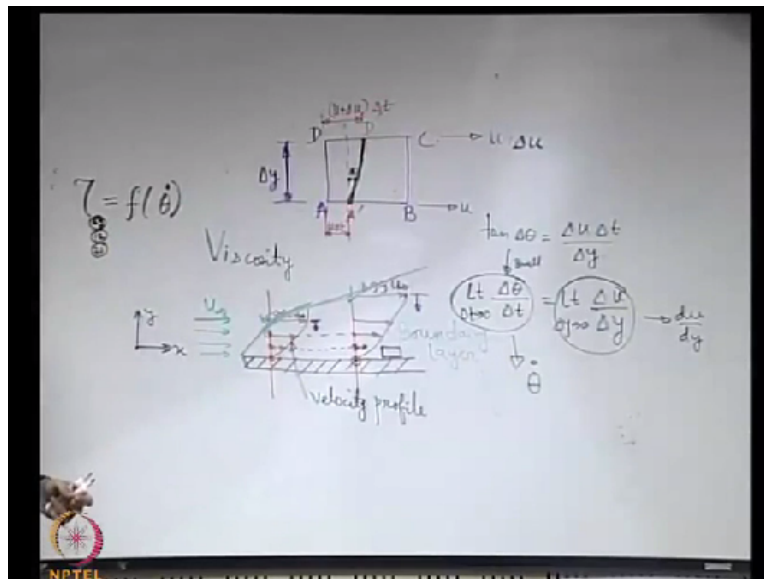 (u+Δu) Δt
D D' C → u+Δu
Δy
A A' B → u
τ = f(θ̇)
Viscosity
tan Δθ = Δu Δt / Δy
small
Lt Δt→0 Δθ/Δt = Lt Δy→0 Δu/Δy → du/dy
θ̇
y
x
Boundary
layer
velocity profile
NPTEL